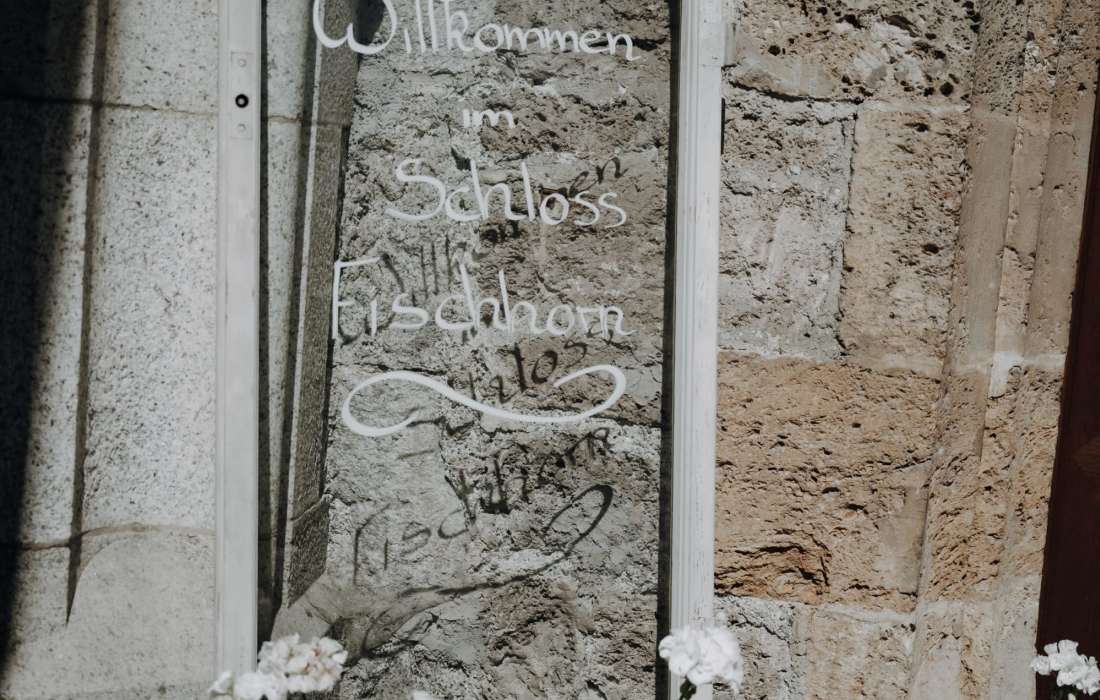 Willkommen
im
Schloss
Fischhorn